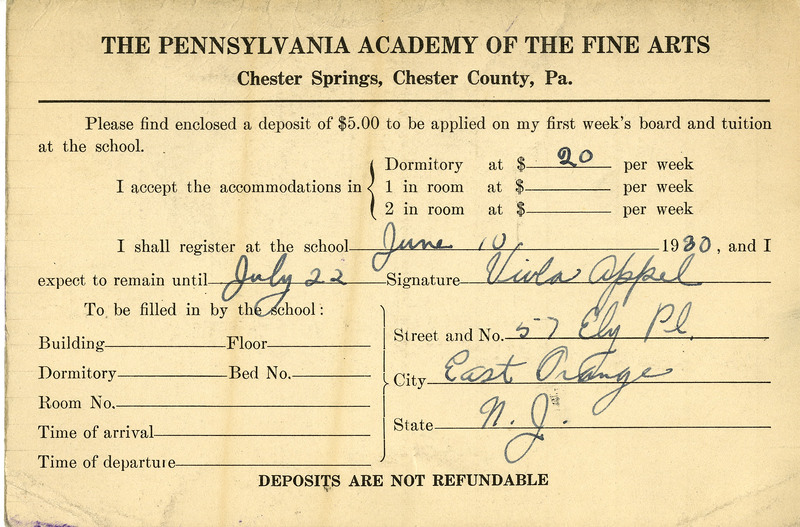 THE PENNSYLVANIA ACADEMY OF THE FINE ARTS
Chester Springs, Chester County, Pa.
Please find enclosed a deposit of $5.00 to be applied on my first week's board and tuition
at the school.
I accept the accommodations in
Dormitory at $ 20 per week
1 in room at $ per week
2 in room at $ per week
I shall register at the school June 10 1930, and I
expect to remain until July 22 Signature Viola Appel
To be filled in by the school:
Building Floor
Dormitory Bed No.
Room No.
Time of arrival
Time of departure
Street and No. 57 Ely Pl.
City East Orange
State N. J.
DEPOSITS ARE NOT REFUNDABLE